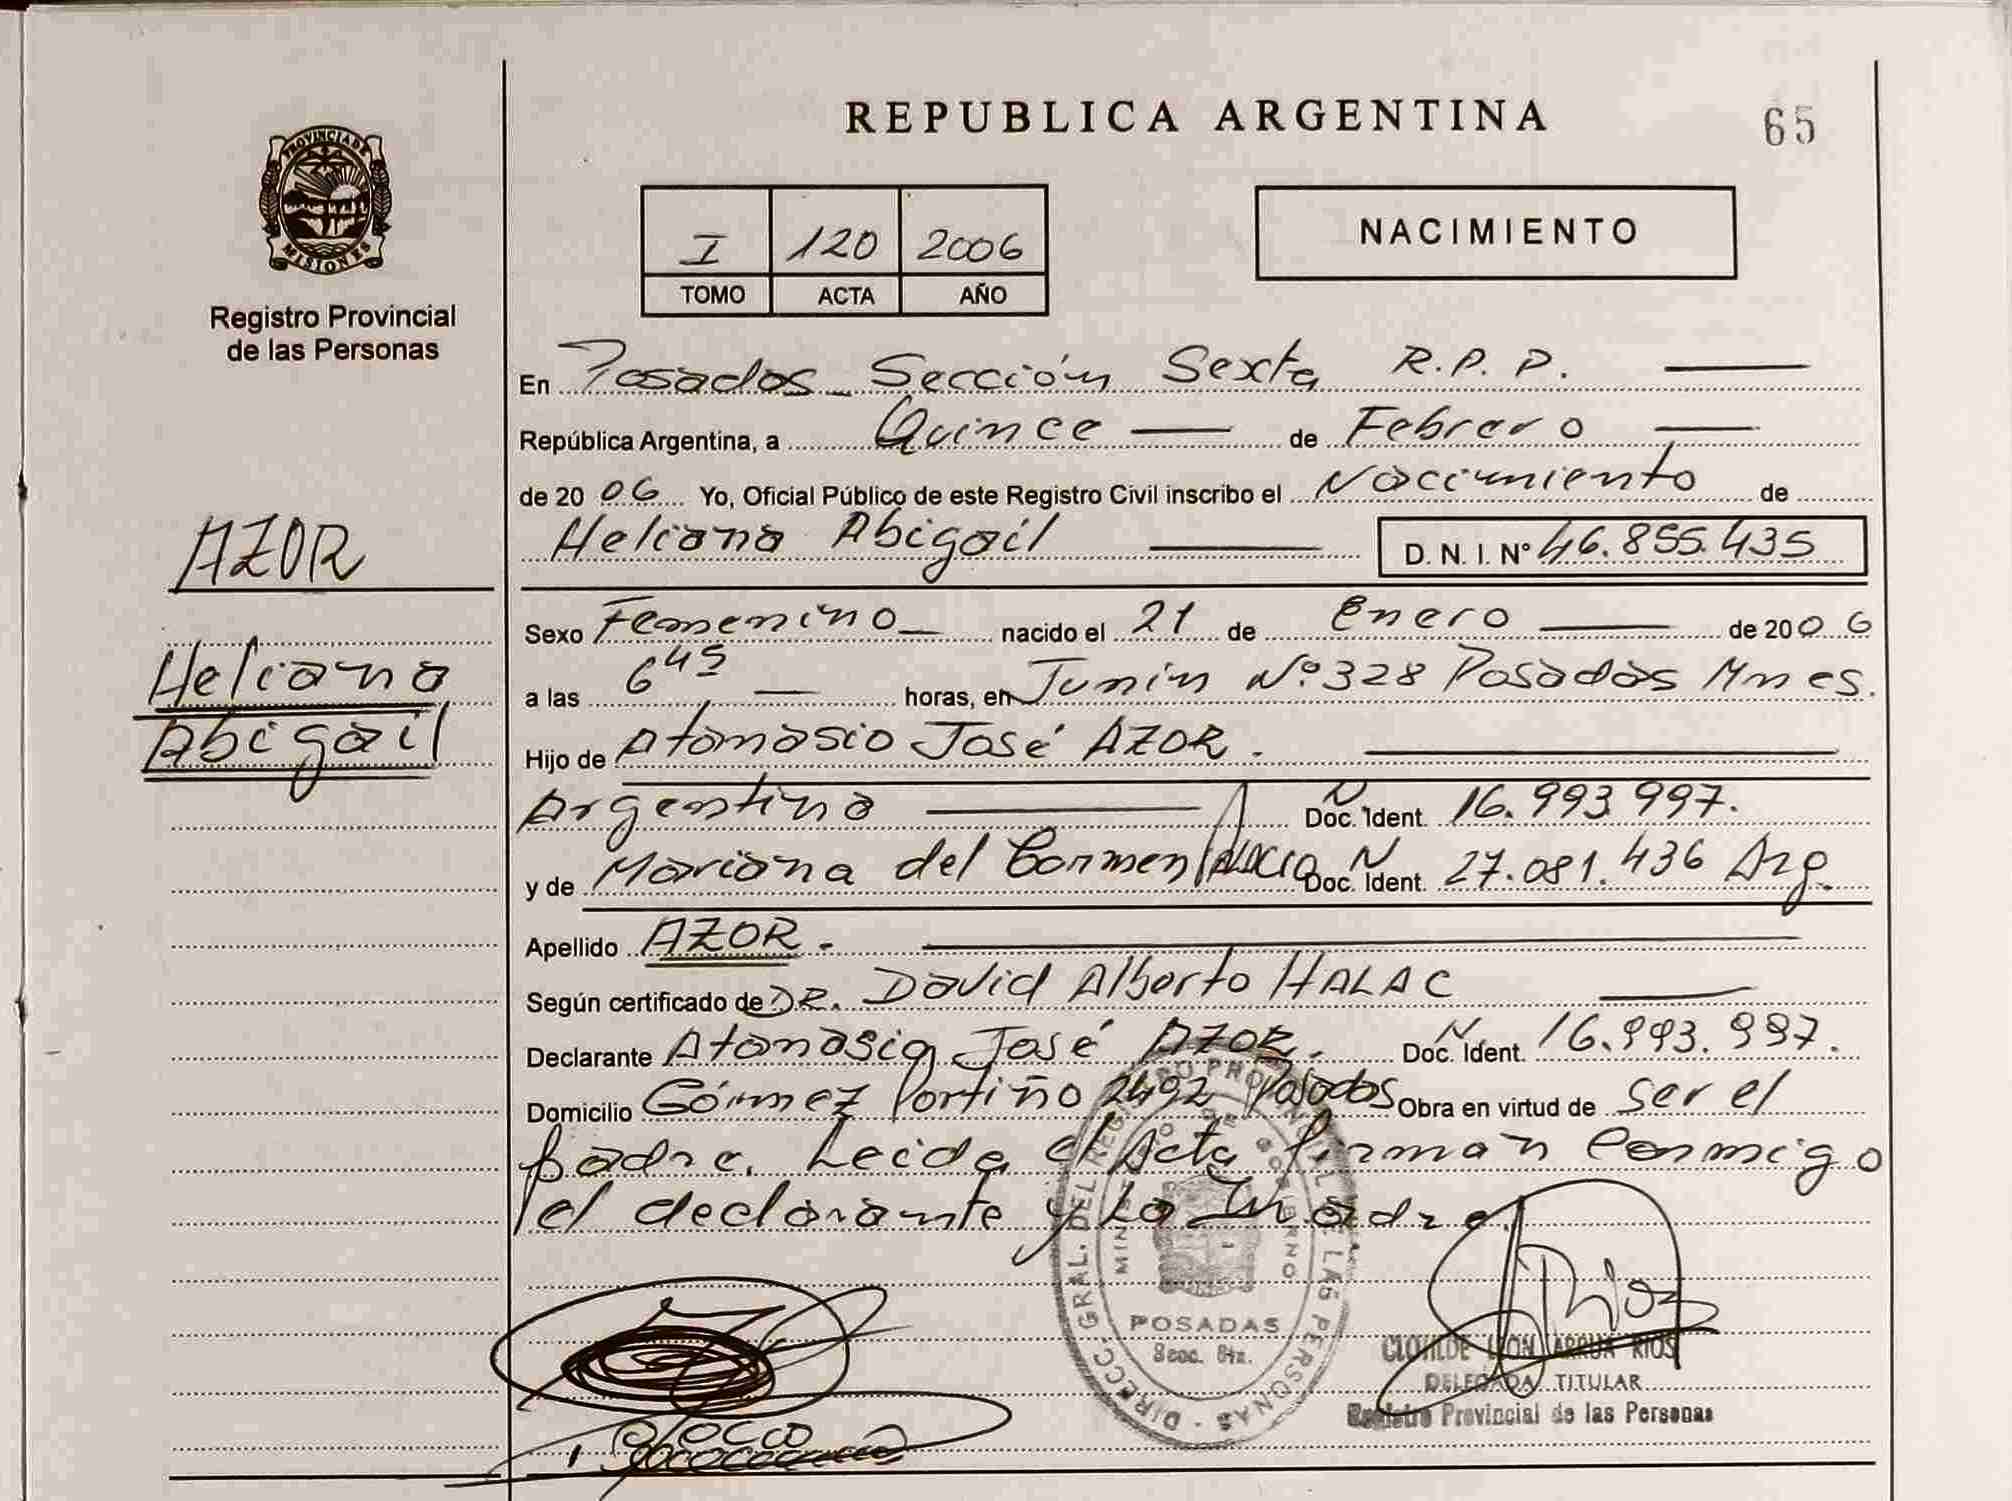 REPUBLICA ARGENTINA
65
PROVINCIA DE
MISIONES
Registro Provincial
de las Personas
I 120 2006
TOMO ACTA AÑO
NACIMIENTO
En Posadas Sección Sexta R.P.P.
República Argentina, a Quince de Febrero
de 2006 Yo, Oficial Público de este Registro Civil inscribo el Nacimiento de
Heliana Abigail D. N. I. Nº 46.855.435
AZOR
Heliana
Abigail
Sexo Femenino nacido el 21 de Enero de 2006
a las 6 45 horas, en Junin Nº 328 Posadas Mnes.
Hijo de Atanasio José AZOR.
Argentino N Doc. Ident. 16.993.997.
y de Mariana del Carmen N Doc. Ident. 27.081.436 Arg.
Apellido AZOR.
Según certificado de DR. David Alberto HALAC
Declarante Atanasio José AZOR. N Doc. Ident. 16.993.997.
Domicilio Gómez Portiño 2492 Posadas Obra en virtud de ser el
padre. Leida el Acta firman Conmigo
el declarante y La Madre.
DIRECC. GRAL. DEL REGISTRO PROVINCIAL DE LAS PERSONAS
POSADAS
Secc. 6ta.
CLOTILDE ARRUA RIOS
DELEGADA TITULAR
Registro Provincial de las Personas